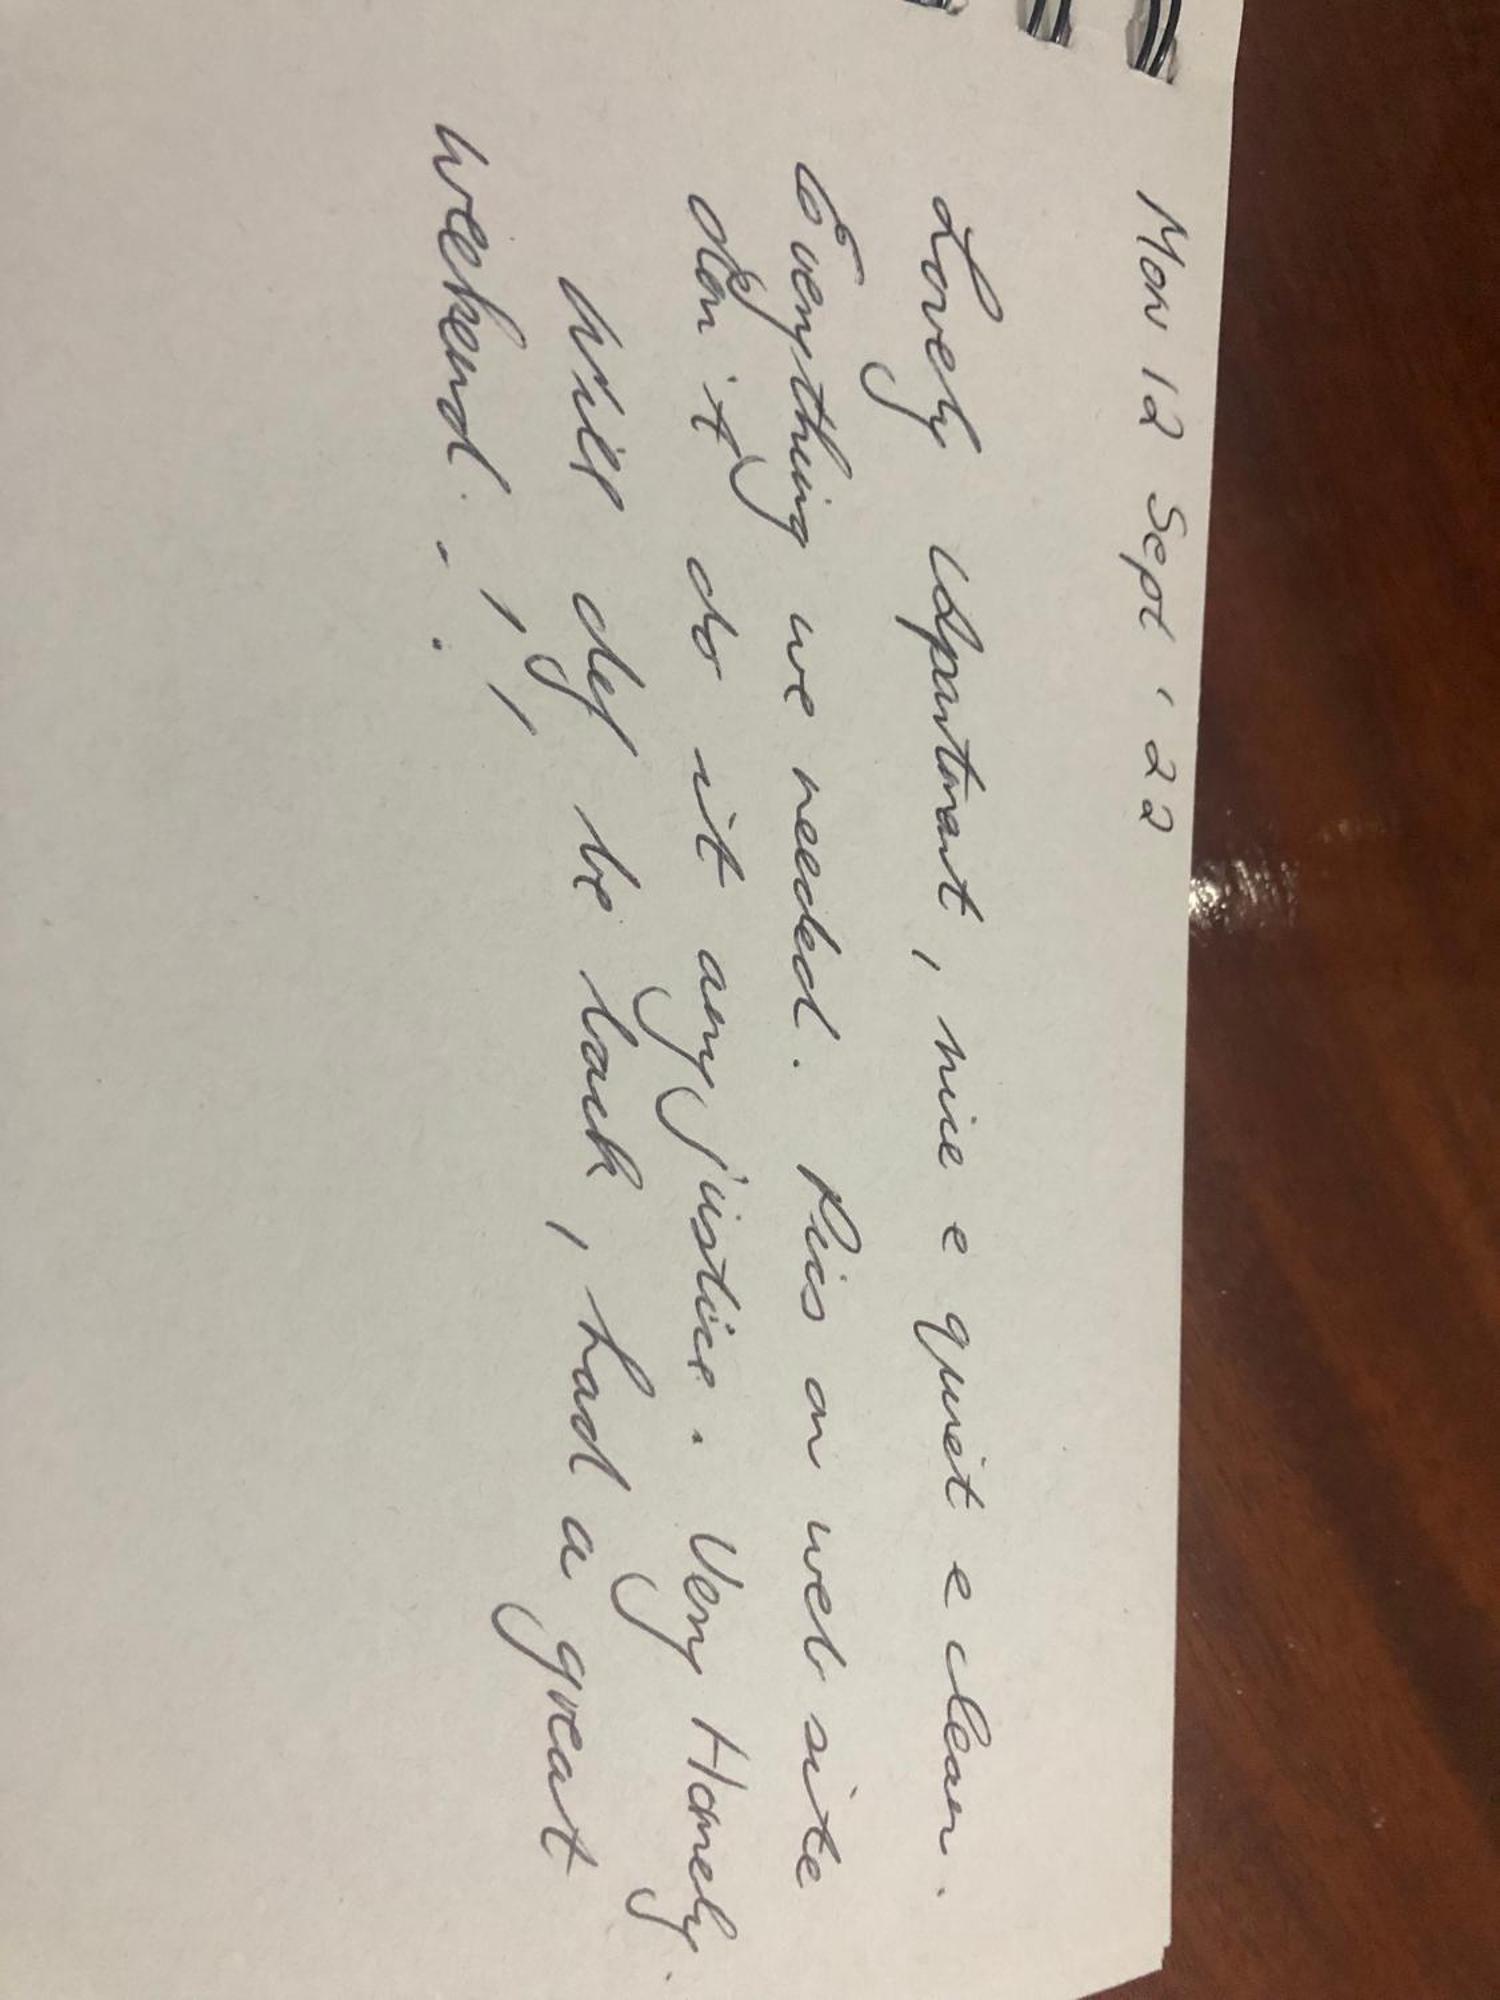 Mon 12 Sept '22
Lovely apartment, nice e quiet e clean.
Everything we needed. Pics on web site
don't do it any justice. Very Homely.
Will def be back, had a great
weekend. !!